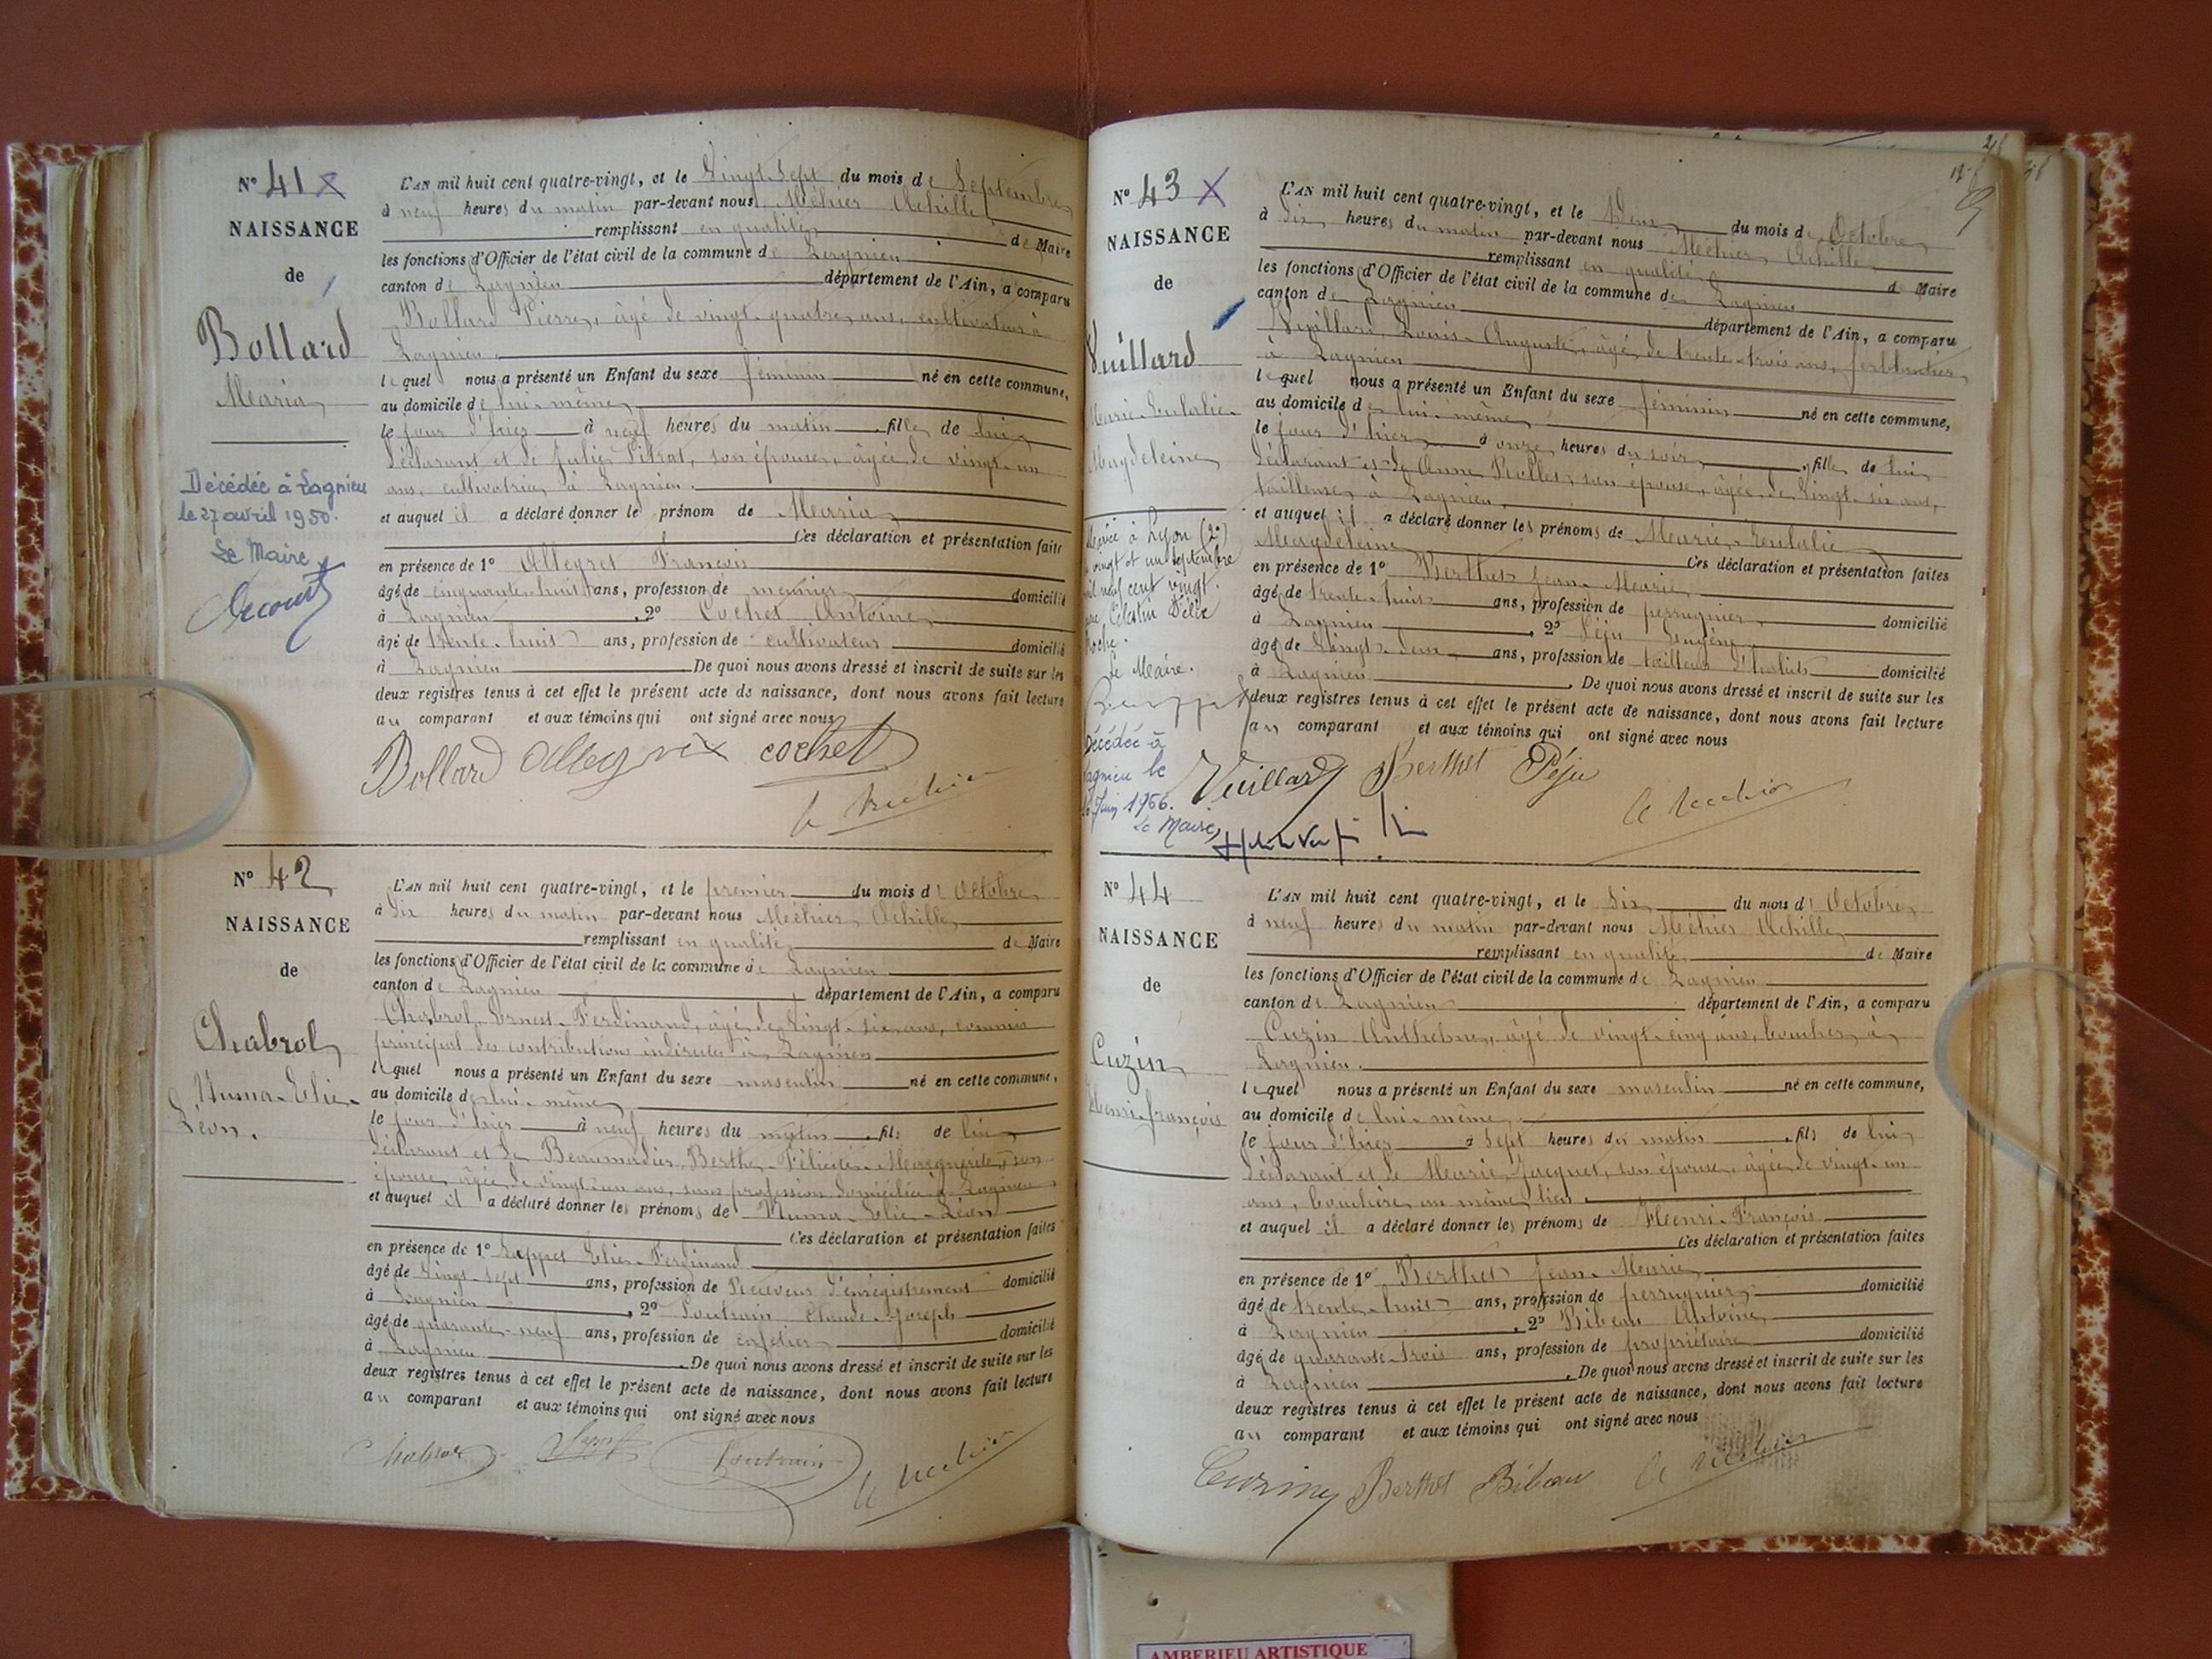 N° 41 X
NAISSANCE
de
Bollard
Maria
Décédée à Lagnieu
le 27 avril 1950.
Le Maire
L'AN mil huit cent quatre-vingt, et le Vingt-Sept du mois de Septembre
à neuf heures du matin par-devant nous Méhier Achille
remplissant en qualité de Maire
les fonctions d'Officier de l'état civil de la commune de Lagnieu
canton de Lagnieu département de l'Ain, a comparu
Bollard Pierre, âgé de vingt-quatre ans, cultivateur à
Lagnieu.
lequel nous a présenté un Enfant du sexe féminin né en cette commune,
au domicile de lui-même
le jour d'hier à neuf heures du matin fille de lui
déclarant et de Julie Pitrat, son épouse, âgée de vingt-un
ans, cultivatrice à Lagnieu.
et auquel il a déclaré donner le prénom de Maria
Ces déclaration et présentation faites
en présence de 1° Allegret François
âgé de cinquante-huit ans, profession de meunier domicilié
à Lagnieu, 2° Cochet Antoine
âgé de trente-huit ans, profession de cultivateur domicilié
à Lagnieu De quoi nous avons dressé et inscrit de suite sur les
deux registres tenus à cet effet le présent acte de naissance, dont nous avons fait lecture
au comparant et aux témoins qui ont signé avec nous
Bollard cochet
N° 42
NAISSANCE
de
Chabrol
Numa-Elie-
Léon.
L'AN mil huit cent quatre-vingt, et le premier du mois d'Octobre
à dix heures du matin par-devant nous Méhier Achille
remplissant en qualité de Maire
les fonctions d'Officier de l'état civil de la commune de Lagnieu
canton de Lagnieu département de l'Ain, a comparu
Chabrol Ernest-Ferdinand, âgé de Vingt-six ans, commis
principal des contributions indirectes à Lagnieu
lequel nous a présenté un Enfant du sexe masculin né en cette commune,
au domicile de lui-même
le jour d'hier à neuf heures du matin fils de lui
déclarant et de Berthe-Félicité-Marguerite, son
épouse, âgée de vingt-un ans, sans profession domiciliée à Lagnieu
et auquel il a déclaré donner les prénoms de Numa-Elie-Léon
Ces déclaration et présentation faites
en présence de 1° Elie-Ferdinand
âgé de Vingt-sept ans, profession de Receveur d'enregistrement domicilié
à Lagnieu, 2° Claude-Joseph
âgé de quarante-neuf ans, profession de cafetier domicilié
à Lagnieu De quoi nous avons dressé et inscrit de suite sur les
deux registres tenus à cet effet le présent acte de naissance, dont nous avons fait lecture
au comparant et aux témoins qui ont signé avec nous
Chabrol
N° 43 X
NAISSANCE
de
Vuillard
Marie-Eulalie-
Magdeleine
Mariée à Lyon (2e)
vingt et un septembre
mil neuf cent vingt
Célestin Félix
Roche.
Le Maire.
Décédée à
Lagnieu le
Juin 1966.
Le Maire,
L'AN mil huit cent quatre-vingt, et le Deux du mois d'Octobre
à dix heures du matin par-devant nous Méhier Achille
remplissant en qualité de Maire
les fonctions d'Officier de l'état civil de la commune de Lagnieu
canton de Lagnieu département de l'Ain, a comparu
Vuillard Louis-Auguste, âgé de trente-trois ans, ferblantier
à Lagnieu
lequel nous a présenté un Enfant du sexe féminin né en cette commune,
au domicile de lui-même
le jour d'hier à onze heures du soir, fille de lui
déclarant et de Anne Rollet, son épouse, âgée de Vingt-six ans,
tailleuse à Lagnieu.
et auquel il a déclaré donner les prénoms de Marie-Eulalie
Magdeleine Ces déclaration et présentation faites
en présence de 1° Berthet Jean-Marie
âgé de trente-huit ans, profession de perruquier domicilié
à Lagnieu, 2° Péju Eugène
âgé de Vingt-deux ans, profession de tailleur d'habits domicilié
à Lagnieu. De quoi nous avons dressé et inscrit de suite sur les
deux registres tenus à cet effet le présent acte de naissance, dont nous avons fait lecture
au comparant et aux témoins qui ont signé avec nous
Vuillard Berthet Péju
N° 44
NAISSANCE
de
Cuzin
Henri-François
L'AN mil huit cent quatre-vingt, et le Six du mois d'Octobre
à neuf heures du matin par-devant nous Méhier Achille
remplissant en qualité de Maire
les fonctions d'Officier de l'état civil de la commune de Lagnieu
canton de Lagnieu département de l'Ain, a comparu
Cuzin Anthelme, âgé de vingt-cinq ans, boucher à
Lagnieu.
lequel nous a présenté un Enfant du sexe masculin né en cette commune,
au domicile de lui-même
le jour d'hier à Sept heures du matin, fils de lui
déclarant et de Marie Jacquet, son épouse, âgée de vingt-un
ans, bouchère au même lieu.
et auquel il a déclaré donner les prénoms de Henri-François
Ces déclaration et présentation faites
en présence de 1° Berthet Jean-Marie
âgé de trente-huit ans, profession de perruquier domicilié
à Lagnieu, 2° Antoine
âgé de quarante-trois ans, profession de propriétaire domicilié
à Lagnieu. De quoi nous avons dressé et inscrit de suite sur les
deux registres tenus à cet effet le présent acte de naissance, dont nous avons fait lecture
au comparant et aux témoins qui ont signé avec nous
Berthet
AMBERIEU ARTISTIQUE